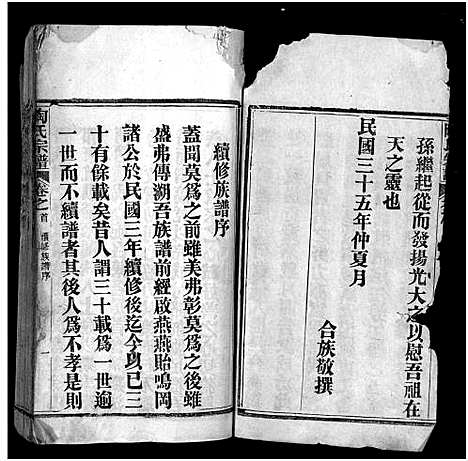 孫繼起從而發揚光大之以慰吾祖在
天之靈也
民國三十五年仲夏月
合族敬撰
續修族譜序
蓋聞莫為之前雖美弗彰莫為之後雖
盛弗傳溯吾族譜前經啟燕燕貽鳴岡
諸公於民國三年續修後迄今以已三
十有餘載矣昔人謂三十載為一世逾
一世而不續譜者其後人為不孝是則
陶氏宗譜
卷之首 續修族譜序 一